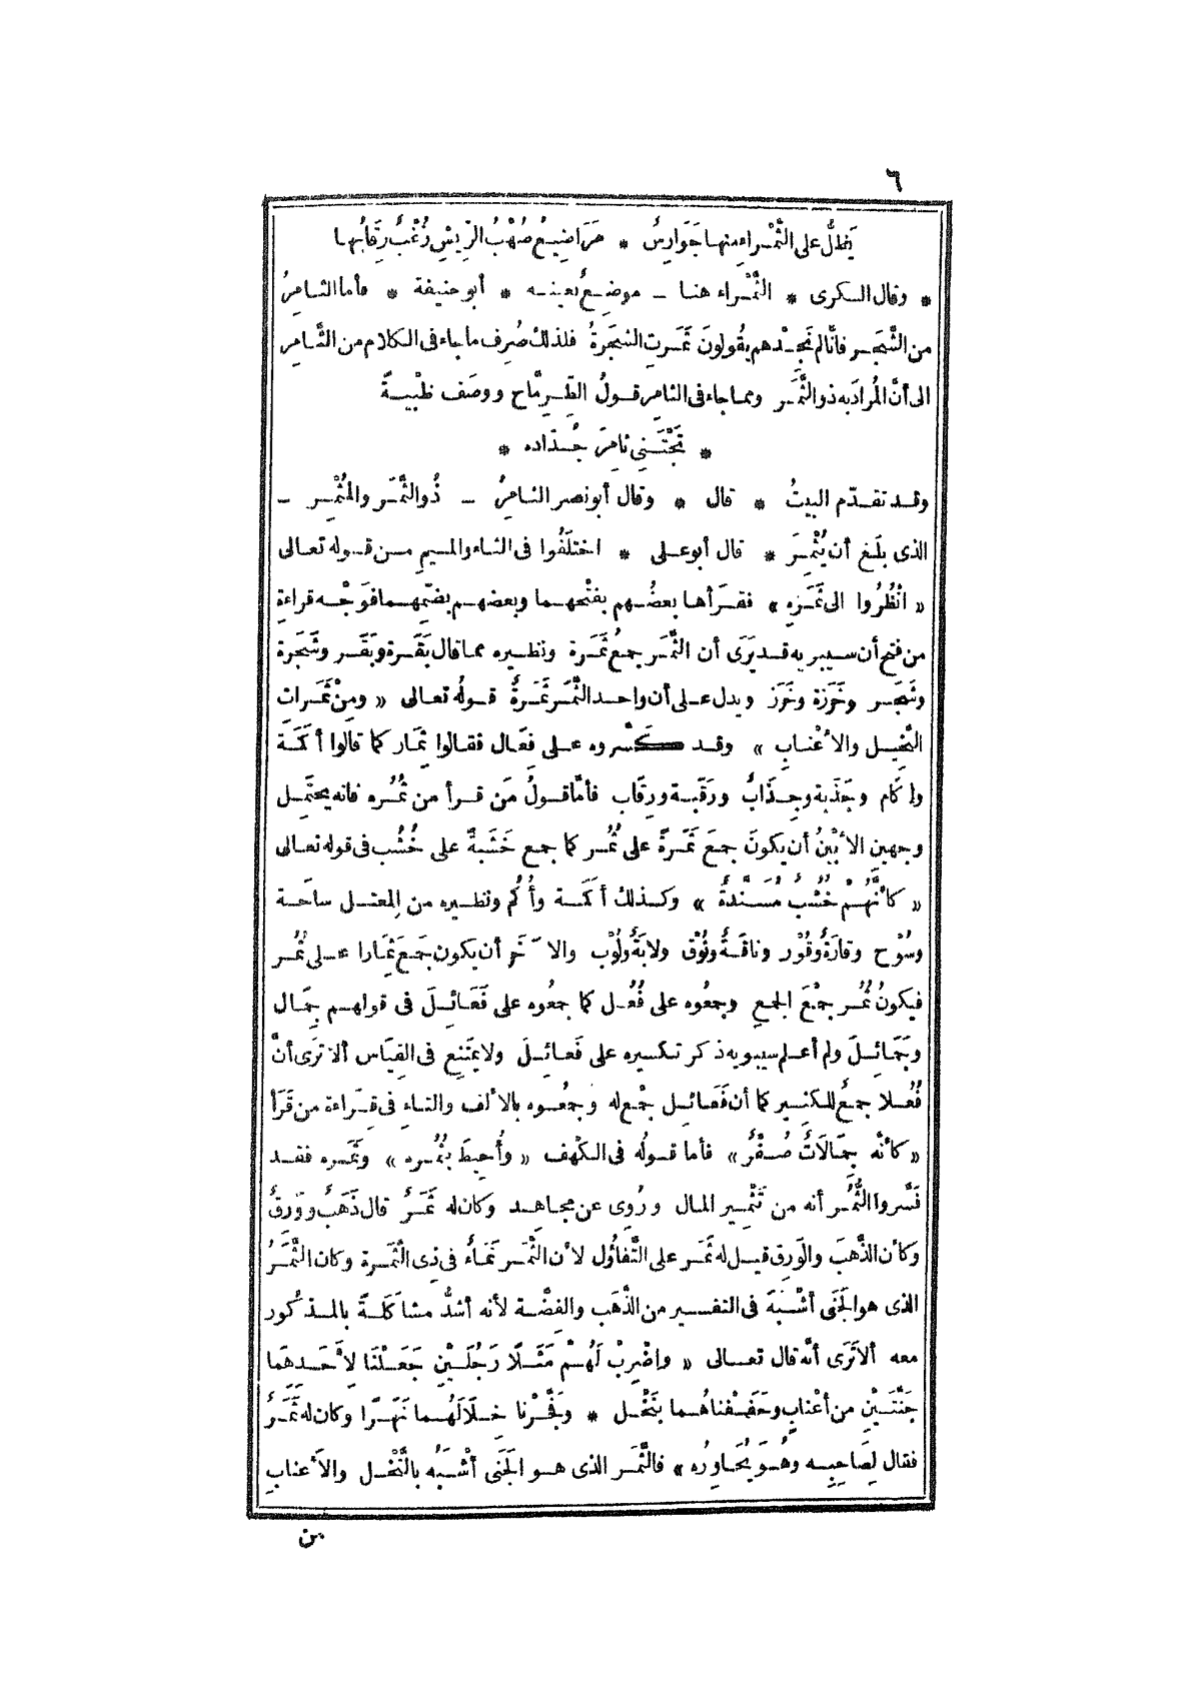 ٦
يَظَلُّ على الثَّمْراءِ منها جَوَارِسُ * مَرَاضِيعُ صُهْبُ الرِّيشِ زُغْبٌ رِقَابُها
* وقال السكرى * الثَّمْراء هنا ـ موضِعٌ بعينه * أبو حنيفة * فأما الثامِرُ
من الشَّجَر فانَّا لم نَجِدْهم يقولونَ ثَمَرتِ الشجَرةُ فلذلك صُرِف ما جاء فى الكلام من الثَّامِر
الى أنَّ المُرادَ به ذو الثَّمَر ومما جاء فى الثامِر قولُ الطِّرِمَّاح ووصَف ظبْيةً
* تَجْتَنِى ثامِرَ جُدَّاده *
وقد تقدّم البيتُ * قال * وقال أبو نصر الثامِرُ ـ ذُو الثَّمَر والمُثْمِر ـ
الذى بلَغ أن يُثْمِرَ * قال أبو على * اختلَفُوا فى الثاء والميمِ من قوله تعالى
« انْظُرُوا الى ثَمَرِه » فقرَأها بعضُهم بفتْحِهما وبعضهم بضمِّهما فوَجْه قراءةِ
من فتح أن سيبويه قد يَرَى أن الثَّمَر جمعُ ثَمَرة ونظيره مما قال بَقَرة وبَقَر وشَجَرة
وشَجَر وخَرَزة وخَرَز ويدل على أن واحد الثَّمَر ثَمَرةٌ قولُه تعالى « ومِنْ ثَمَرات
النَّخِيل والأعْنابِ » وقد كسَّروه على فِعَال فقالوا ثِمَار كما قالوا أكَمَة
وإكَام وجَذَبة وجِذَابٌ ورَقَبة ورِقَاب فأمَّا قولُ مَن قرأ من ثُمُره فانه يحتَمِل
وجهين الأبْيَنُ أن يكونَ جمعَ ثَمَرةً على ثُمُر كما جمع خَشَبةٌ على خُشُب فى قوله تعالى
« كأنَّهُمْ خُشُبٌ مُسَنَّدةٌ » وكذلك أكَمَة وأُكُم ونظيره من المعتل ساحَة
وسُوْح وقارَةٌ وقُوْر وناقَةٌ ونُوْق ولابَةٌ ولُوْب والآخَر أن يكون جَمَعَ ثِمَارا على ثُمُر
فيكونُ ثُمُر جمْعَ الجمع وجمعُوه على فُعُل كما جمعُوه على فَعَائِلَ فى قولهم جِمَال
وجَمَائِلَ ولم أعلم سيبويه ذكر تكسيره على فَعائِلَ ولا يمتَنِع فى القِيَاس ألا تَرَى أنَّ
فُعُلا جمعٌ للكثير كما أن فَعَائِل جمْع له وجمعُوه بالألف والتاءِ فى قِراءة من قَرَأ
« كأنَّه جِمَالَاتٌ صُفْرٌ » فأما قولُه فى الكَهْف « وأُحِيطَ بثُمُره » وثَمَره فقد
فَسَّروا الثُّمُر أنه من تَثْمِير المال ورُوِى عن مجاهِد وكان له ثَمَرٌ قال ذَهَبٌ وورَقٌ
وكأن الذَّهَبَ والوَرِق قيل له ثَمَر على التَّفاؤُل لأن الثَّمَر نَمَاءٌ فى ذِى الثَّمَرة وكان الثَّمَرُ
الذى هو الجَنَى أشْبَهَ فى التفسير من الذَّهَب والفِضَّة لأنه أشدُّ مشاكَلةً بالمذكُور
معه ألا تَرَى أنَّه قال تعالى « واضْرِبْ لَهُمْ مَثَلًا رَجُلَيْنِ جَعَلْنَا لِأَحَدِهِمَا
جَنَّتَيْنِ من أعْنابٍ وحَفَفْناهُما بنَخْل * وفَجَّرْنا خِلَالَهُما نَهَرًا وكان له ثَمَرٌ
فقال لِصَاحِبِه وهُوَ يُحَاوِرُه » فالثَّمَر الذى هو الجَنَى أشْبَهُ بالنَّخْل والأعنابِ
من